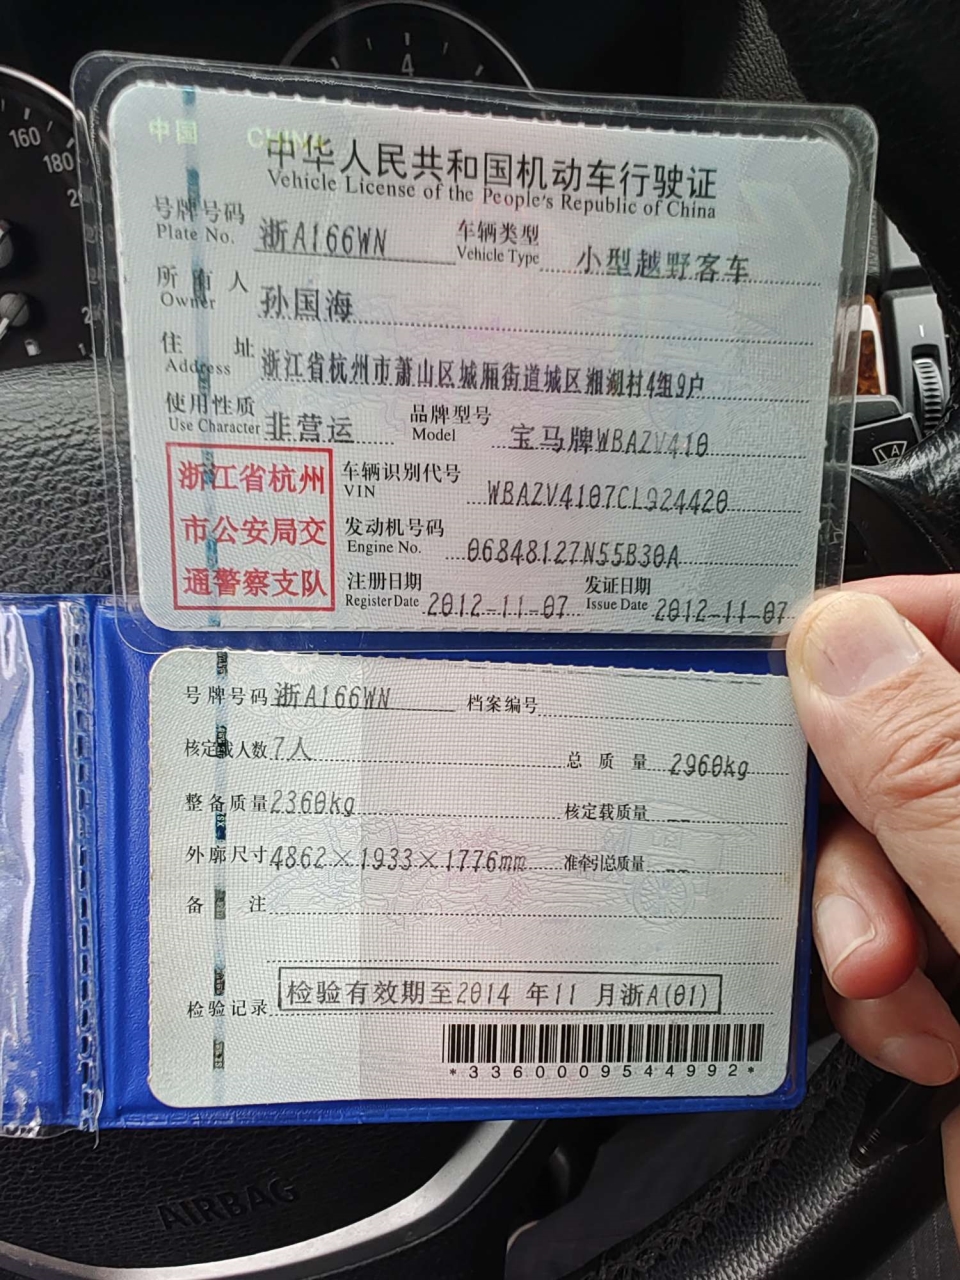 4
160
180
中国 CHINA
中华人民共和国机动车行驶证
Vehicle License of the People's Republic of China
号牌号码 浙A166WN 车辆类型 小型越野客车
Plate No. Vehicle Type
所有人 孙国海
Owner
住址 浙江省杭州市萧山区城厢街道城区湘湖村4组9户
Address
使用性质 非营运 品牌型号 宝马牌WBAZV410
Use Character Model
浙江省杭州
市公安局交
通警察支队
车辆识别代号 WBAZV4107CL924420
VIN
发动机号码 06848127N55B30A
Engine No.
注册日期 2012-11-07 发证日期 2012-11-07
Register Date Issue Date
号牌号码 浙A166WN 档案编号
核定载人数 7人 总质量 2960kg
整备质量 2360kg 核定载质量 --
外廓尺寸 4862×1933×1776mm 准牵引总质量 --
备注
检验记录 检验有效期至2014 年11 月浙A(01)
*3360009544992*
AIRBAG